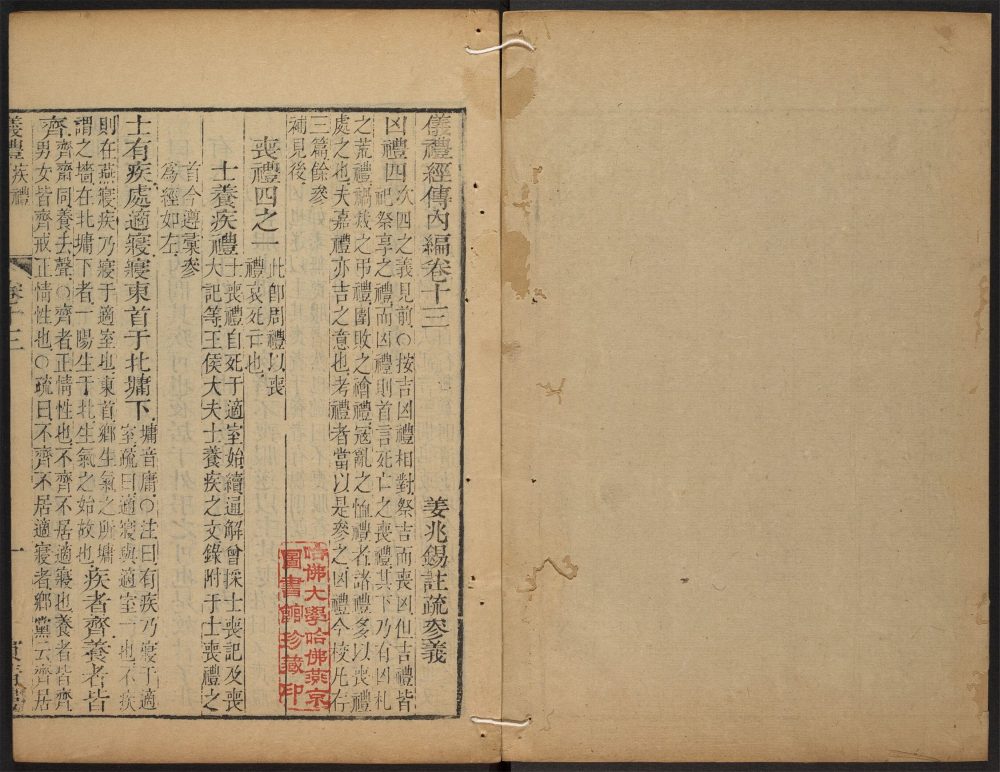 儀禮經傳內編卷十三
姜兆錫註疏參義
凶禮四次四之義見前○按吉凶禮相對祭吉而喪凶但吉禮皆
祀祭享之禮而凶禮則首言死亡之喪禮其下乃有凶札
之荒禮禍烖之弔禮圍敗之禬禮寇亂之恤禮者諸禮多以喪禮
處之也夫嘉禮亦吉之意也考禮者當以是參之凶禮今校凡右
三篇餘參
補見後
喪禮四之一此卽周禮以喪
禮哀死亡也
士養疾禮士喪禮自死于適室始續通解曾採士喪記及喪
大記等王侯大夫士養疾之文錄附于士喪禮之
首今遵彙參
爲經如左
士有疾處適寢寢東首于北墉下墉音庸○注曰有疾乃寢于適
室疏曰適寢與適室一也不疾
則在燕寢疾乃寢于適室也東首鄉生氣之所墉
謂之墻在北墉下者一陽生于北生氣之始故也疾者齊養者皆
齊齊齋同養去聲○齊者正情性也不齊不居適寢也養者皆齊
男女皆齊戒正情性也○疏曰不齊不居適寢者鄉黨云齊居
儀禮疾禮
卷十三
一
哈佛大學哈佛燕京
圖書館珍藏印